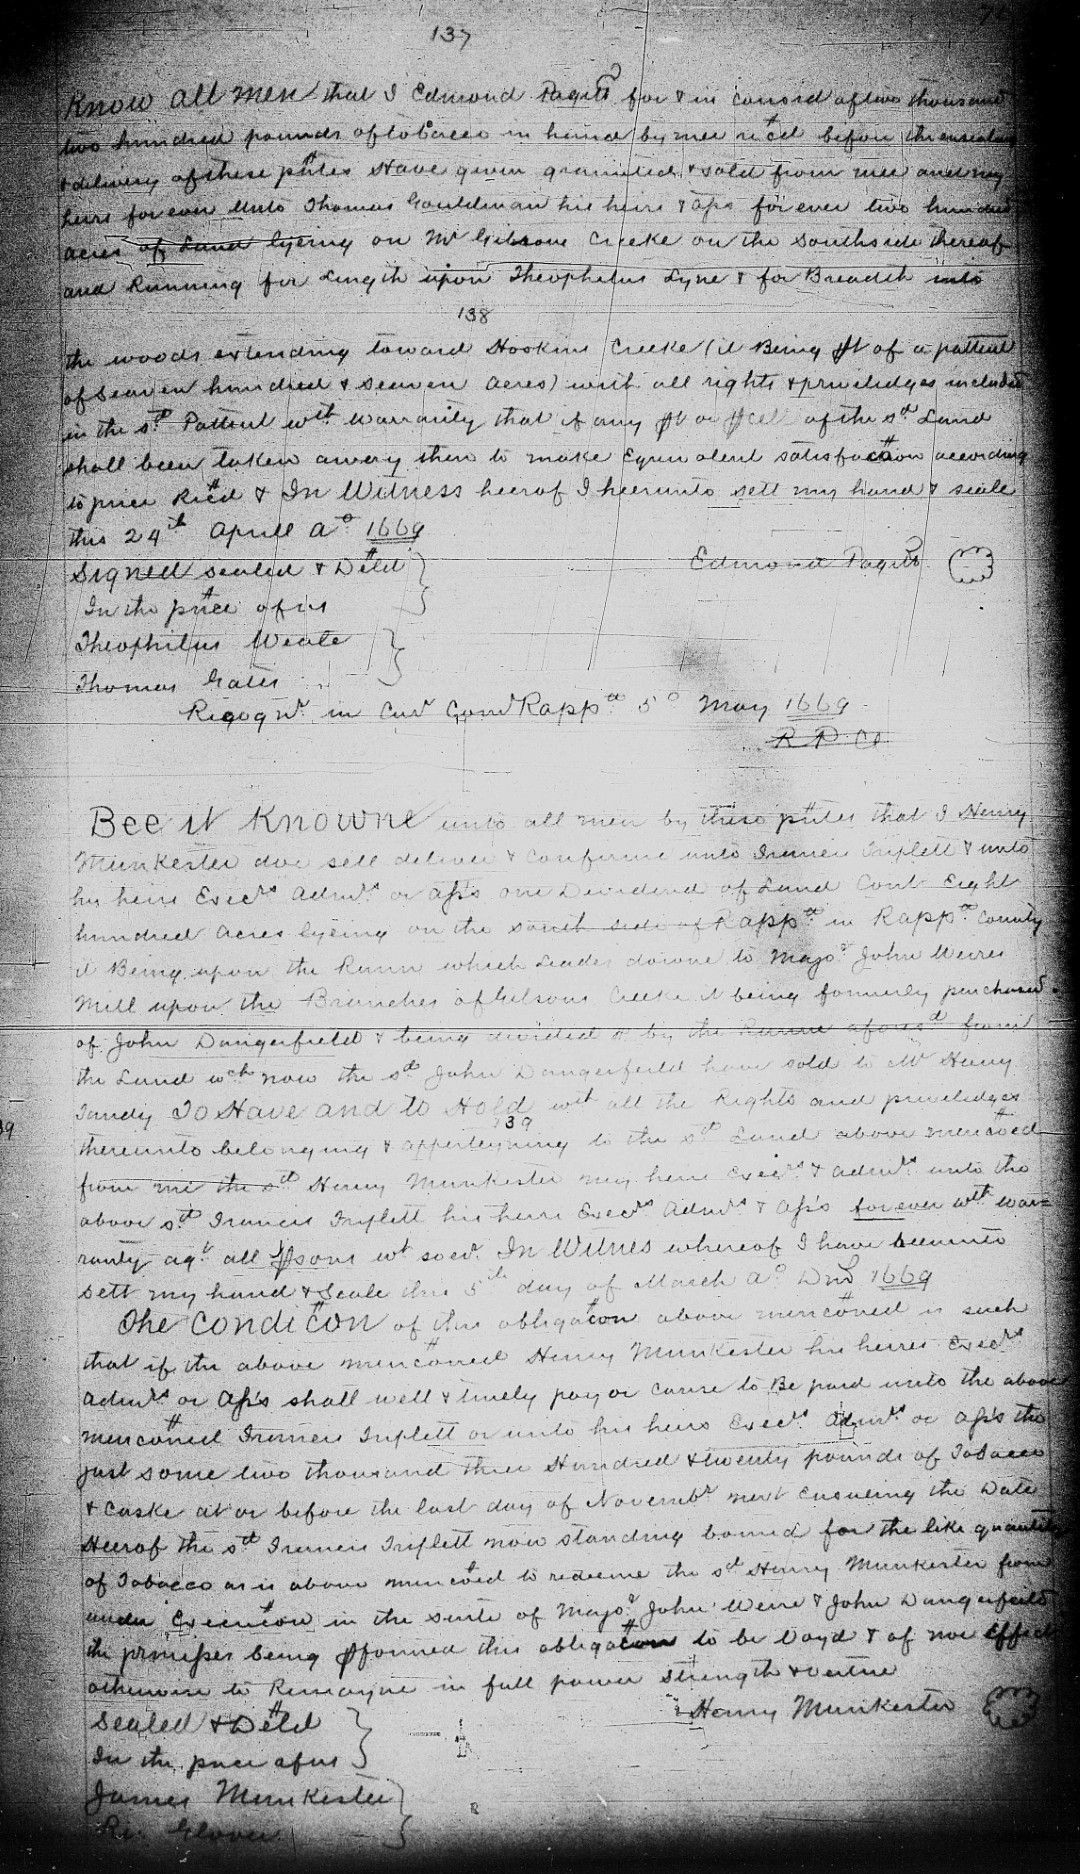 137
Know all men that I Edmond Pagitt for & in consid of two thousand
two hundred pounds of tobacco in hand by mee rec̃d before the ensealing
& delivery of these pñtes Have given granted & sold from mee and my
heirs for ever unto Thomas Gouldman his heirs & ass for ever two hundred
acres of Land lyeing on Mr Gilsons Creeke on the Southside thereof
and Running for Length upon Theophilus Lyne & for Breadth into
138
the woods extending toward Hoskins Creeke (it Being pt of a pattent
of Seaven hundred & seaven acres) with all rights & priviledges included
in the sd Pattent wth warranty that if any pt or pcel of the sd Land
shall been taken away then to make Equivalent satisfac̃on according
to price Rec̃d & In Witness heerof I heerunto sett my hand & seale
this 24th Aprill Ao 1669
Signed sealed & Del̃d
Edmond Pagitt
In the pñce of us
Theophilus Weale
Thomas Gates
Recognr in Cur Com Rappa 5o May 1669
R P Cl
Bee it Knowne unto all men by these pñtes that I Henry
Munkester doe sell deliver & confirme unto Francis Triplett & unto
his heirs Execrs Admrs or Ass one Dividend of Land Cont Eight
hundred Acres lyeing on the south side of Rappa in Rappa County
it Being upon the Runn which Leades downe to Major John Weires
Mill upon the Branches of Gilsons Creeke it being formerly purchased
of John Dangerfield & being divided by the Runne aforesd from
the Land wch now the sd John Dangerfeild have sold to Mr Henry
Tandy To Have and to Hold wth all the Rights and priviledges
139
thereunto belonging & apperteyning to the sd Land above menc̃oned
from me the sd Henry Munkester my heirs Execrs & admrs unto the
above sd Francis Triplett his heirs Execrs Admrs & Ass for ever wth war=
ranty agt all psons wt soevr In Witnes whereof I have heerunto
sett my hand & Seale this 5th day of March Ao Dm̃ 1669
The Condic̃on of this obligac̃on above menc̃oned is such
that if the above menc̃oned Henry Munkester his heires Execrs
Admrs or Ass shall well & truely pay or cause to Be paid unto the above
menc̃oned Francis Triplett or unto his heirs Execrs Admrs or Ass the
just some two thousand three Hundred & twenty pounds of Tobacco
& caske at or before the last day of Novembr next ensueing the Date
Heerof the sd Francis Triplett now standing bound for the like quantity
of Tobacco as is above menc̃oed to redeeme the sd Henry Munkester from
under Execuc̃on in the suite of Major John Weire & John Dangerfeild
the premisses being pformed this obligac̃on to be Voyd & of non Effect
otherwise to Remayne in full power strength & vertue
Sealed & Del̃d
Henry Munkester
In the pñce of us
James Munkester
Ri: Glover